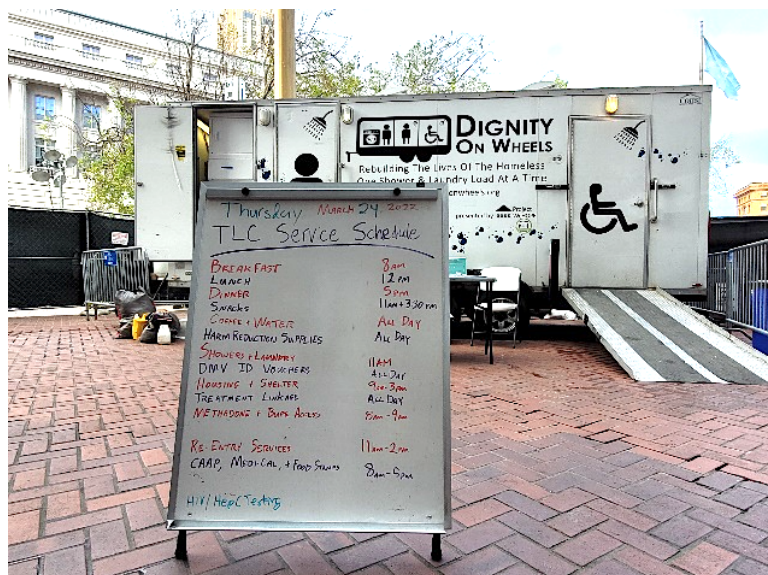 DIGNITY
ON WHEELS
Rebuilding The Lives Of The Homeless
One Shower & Laundry Load At A Time
onwheels.org
presented by Project
Thursday March 24 2022
TLC Service Schedule
BREAKFAST 8am
LUNCH 12pm
DINNER 5pm
SNACKS 11am + 3:30pm
COFFEE + WATER ALL DAY
HARM REDUCTION SUPPLIES ALL DAY
SHOWERS + LAUNDRY
DMV ID VOUCHERS 11AM
HOUSING + SHELTER ALL DAY
TREATMENT LINKAGE 9am-3pm
METHADONE + BUPE ACCESS ALL DAY
8am-9am
RE-ENTRY SERVICES 11am-2pm
CAAP, MEDICAL, + FOOD STAMPS 8am-5pm
HIV/HepC Testing